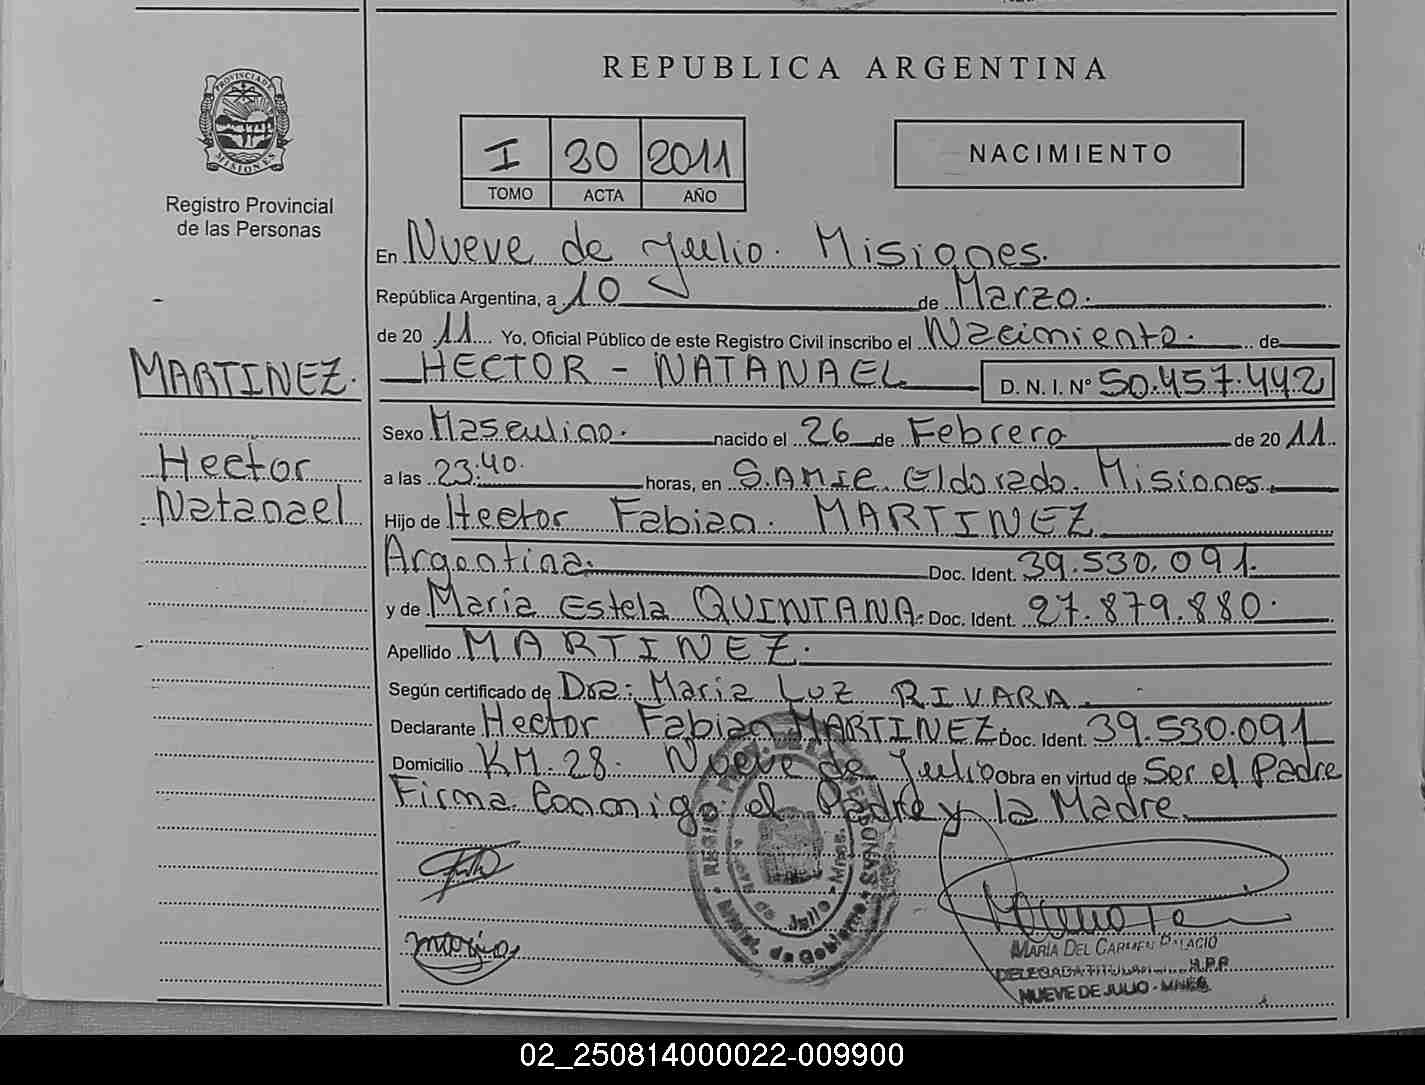 PROVINCIA DE
MISIONES
Registro Provincial
de las Personas
MARTINEZ.
Hector
Natanael
REPUBLICA ARGENTINA
I 30 2011
TOMO ACTA AÑO
NACIMIENTO
En Nueve de Julio. Misiones.
República Argentina, a 10 de Marzo.
de 20 11 Yo, Oficial Público de este Registro Civil inscribo el Nacimiento. de
HECTOR - NATANAEL D. N. I. Nº 50.457.442
Sexo Masculino. nacido el 26 de Febrero de 20 11.
a las 23:40. horas, en S.AMIE. Eldorado. Misiones.
Hijo de Hector Fabian. MARTINEZ
Argentina. Doc. Ident. 39.530.091.
y de Maria Estela QUINTANA. Doc. Ident. 27.879.880.
Apellido MARTINEZ.
Según certificado de Dra: Maria Luz RIVARA.
Declarante Hector Fabian MARTINEZ. Doc. Ident. 39.530.091
Domicilio KM. 28. Nueve de Julio Obra en virtud de Ser el Padre
Firma Conmigo el Padre y la Madre.
REGIO. PROV. DE LAS PERSONAS
Nueve de Julio - Mnes.
Minist. de Gobierno
MARIA DEL CARMEN PALACIO
DELEGADA TITULAR R.P.P.
NUEVE DE JULIO - MNES
02_250814000022-009900